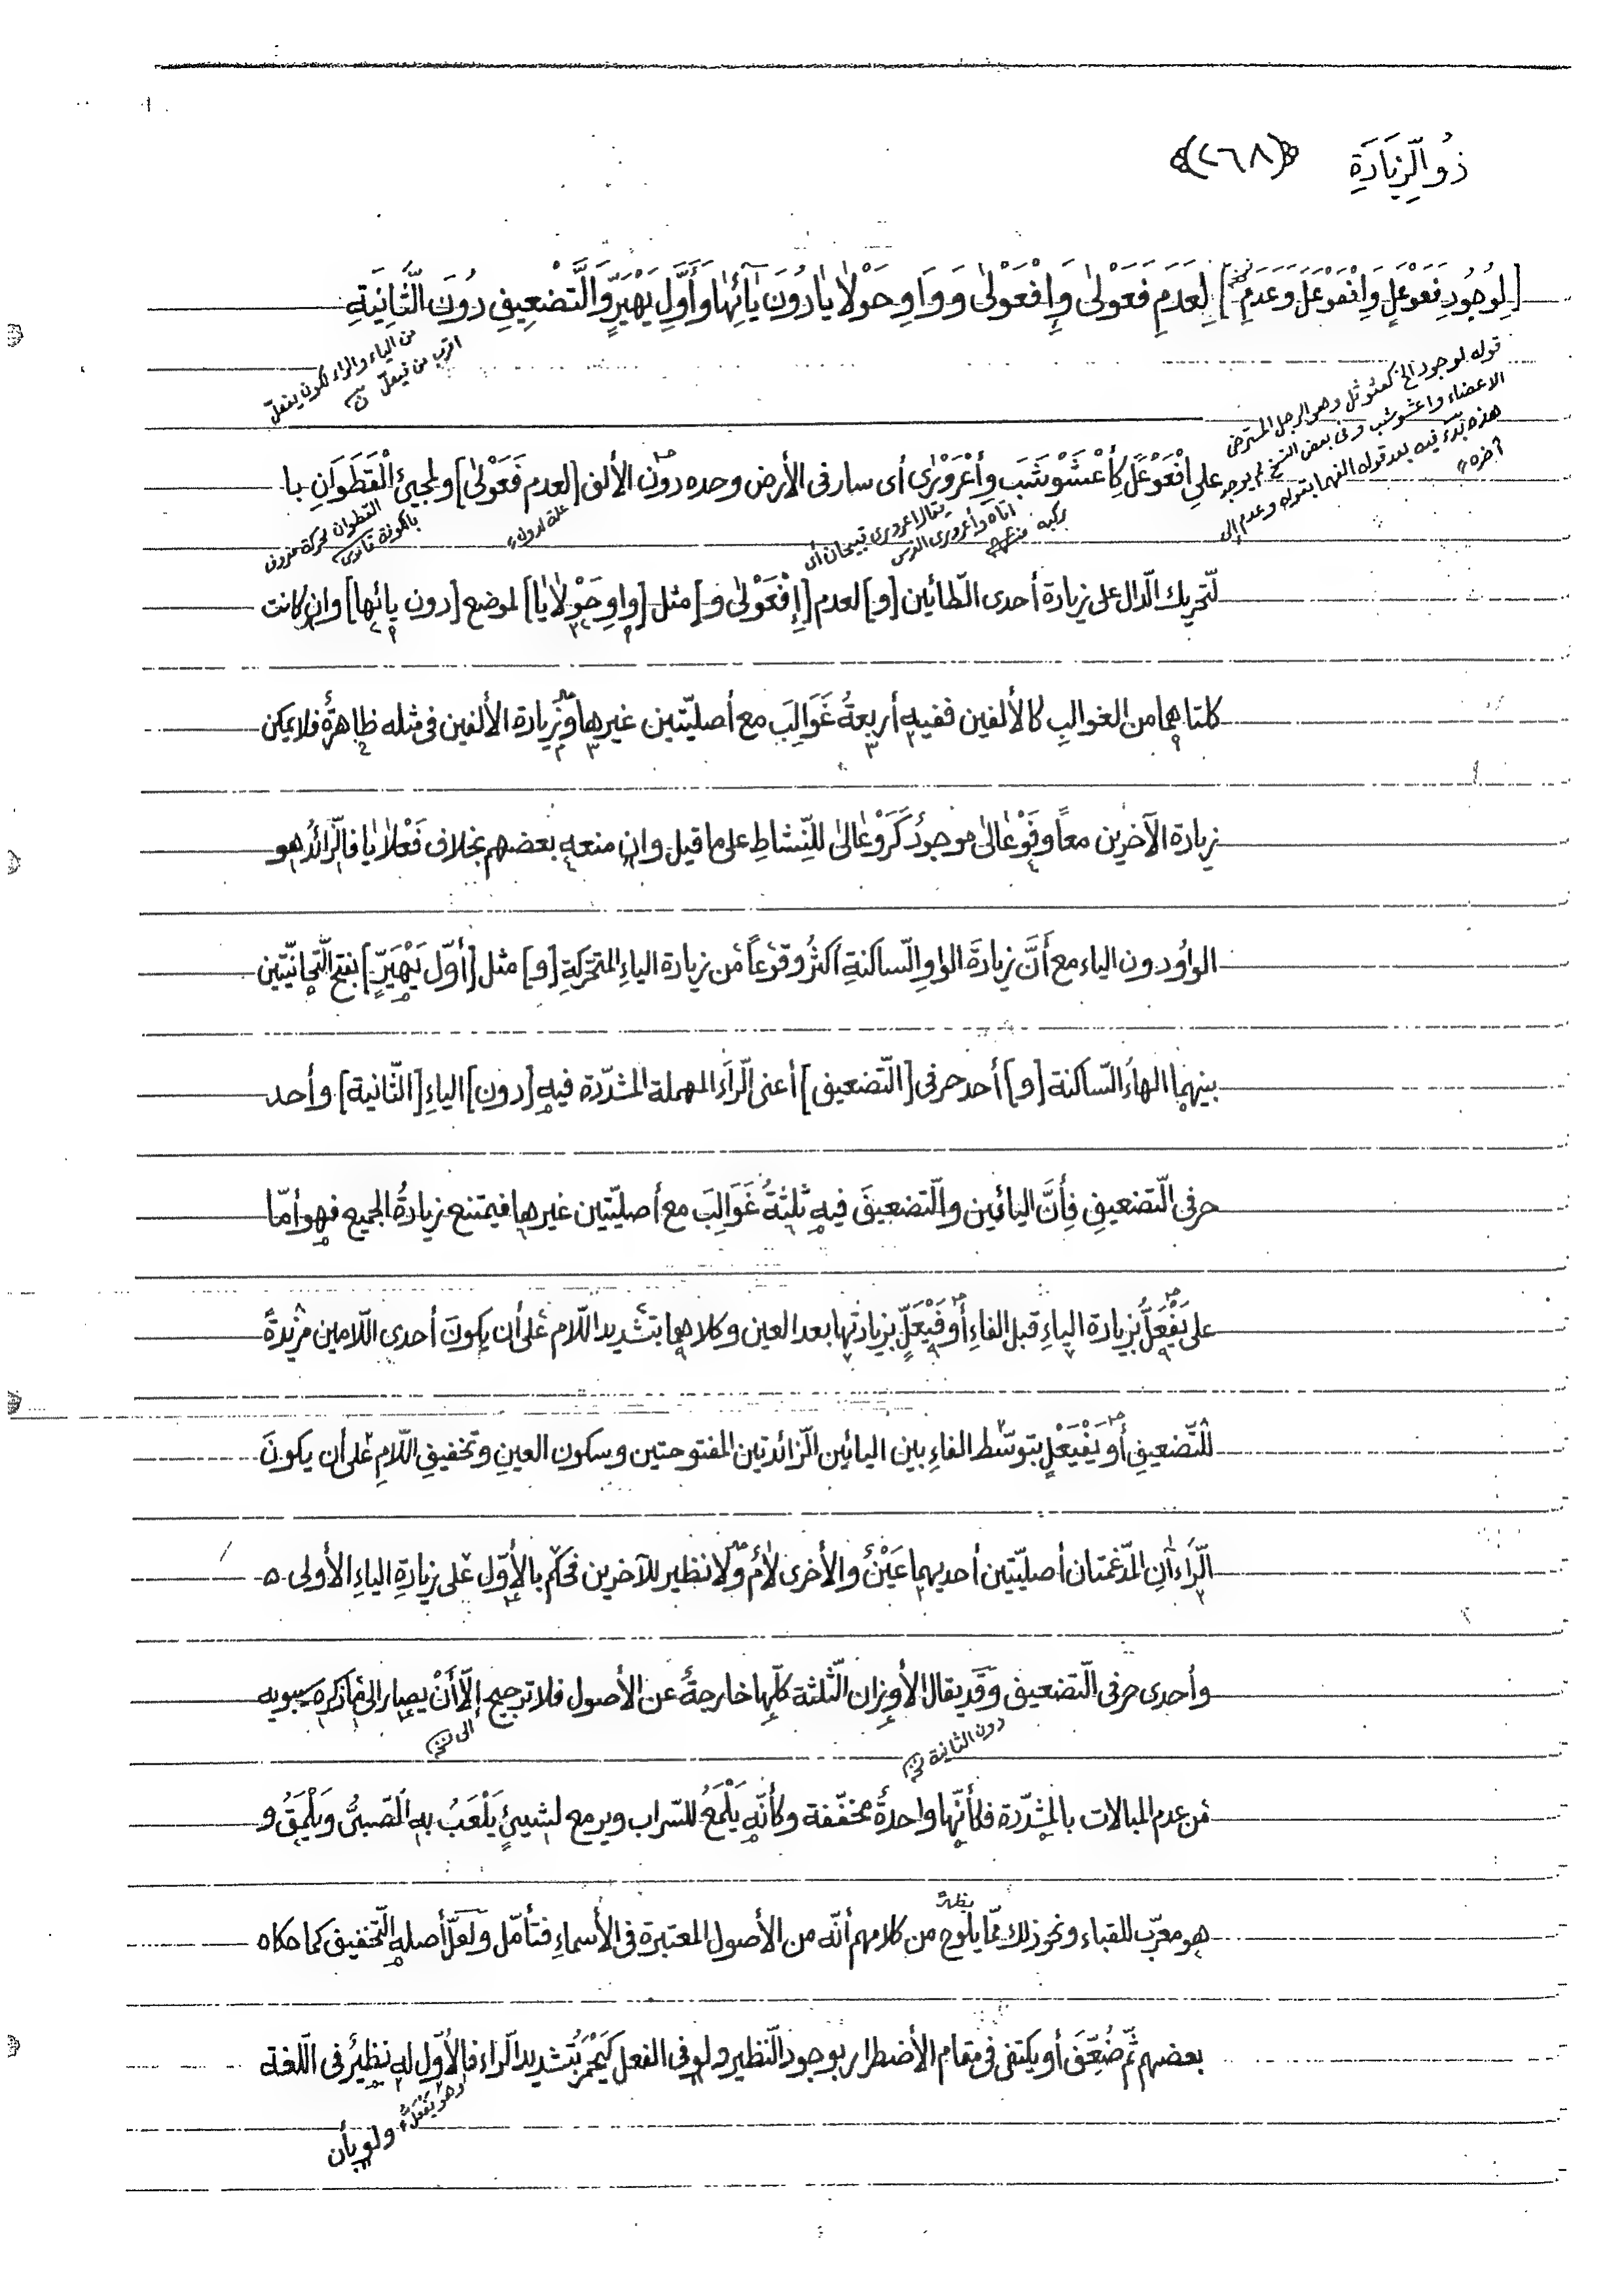 ذُو الزِّيَادَةِ ﴿٢٦٨﴾
[لِوُجُودِ فَعَوْعَلٍ وَافْعَوْعَلَ وَعَدَمِ] لِعَدَمِ فَعَوْلَىٰ وَإِفْعَوْلَىٰ وَوَاوِ حَوْلَايَا دُونَ يَائِهَا وَأَوَّلِ يَهْيَرٍّ وَالتَّضْعِيفِ دُونَ الثَّانِيَةِ
من الياء والراء لكون يفعلّ
اقرب من فيعلّ
قوله لوجود الخ كعثوثل وهو الرجل المسترخى
الاعضاء واعشوشب وفى بعض النسخ لم يوجد
هذه بدء فيه بعد قوله الفهما بقوله وعدم إلى
آخره
على افْعَوْعَلَ كَأَعْشَوْشَبَ وأَعْرَوْرَى أى سار فى الأرض وحده دون الألف [لعدم فَعَوْلَىٰ] ولمجيئ الْقَطَوَانِ با
القطوان محركة مقرون
بالكوفة قاموس
علة لدون
يقال اعرورى قبيحان أى
اتاه وأعرورى الفرس
ركبه
لتّحريك الدّال على زيادة أحدى الطّائين [و] لعدم [إِفْعَوْلَىٰ و] مثل [واوِ حَوْلَايَا] لموضع [دون يائها] وان كانت
كلتا هما من الغوالبِ كالألفين ففيه أربعةُ غَوَالِبَ مع أصليّتين غيرها وزيادة الألفين فى مثله ظاهرةٌ فلا يمكن
زيادة الآخرين معاً وفَوْعَالَىٰ موجودٌ كَرَوْعَالىٰ للنّشاطِ على ما قيل وان منعه بعضهم بخلاف فَعْلَايَا فالزّائدُ هو
الواوُ دون الياء مع أَنَّ زيادةَ الواوِ السّاكنةِ أكثرُ وقوعاً من زيادة الياءِ المتحرّكةِ [و] مثل [أوّل يَهْيَرٍّ] بفتح التّحتانيّتين
بينهما الهاءُ السّاكنة [و] أحد حرفى [التّضعيف] أعنى الرّاءَ المهملة المشدّدة فيه [دون] الياءِ [الثّانية] وأحد
حرفى التّضعيفِ فأَنَّ اليائين والتّضعيفَ فيه ثلثةُ غَوَالِبَ مع أصليّتين غيرها فيمتنع زيادةُ الجميع فهو أمّا
على يَفْعَلٍّ بزيادة الياءِ قبل الفاءِ أو فَيْعَلٍّ بزيادتها بعد العين وكلاهما بتشديد اللّام على أن يكونَ أحدى اللّامين مزيدةً
للتّضعيفِ أو يَفْيَعْلٍ بتوسّط الفاءِ بين اليائين الزّائدتين المفتوحتين وسكون العينِ وتخفيفِ اللّامِ على أن يكونَ
الرّاءانِ المدّغمتان أصليّتين أحديهما عَيْنٌ والأخرى لامٌ ولا نظير للآخرين فحكم بالأوّل على زيادةِ الياءِ الأولى
وأحدى حرفى التّضعيف وقد يقال الأوزان الثّلثة كلّها خارجةٌ عن الأصول فلا ترجيح إلّا أَنْ يصار إلى ما ذكره سيبويه
دون الثانية
من عدم المبالات بالمشدّدة فكأنّها واحدةٌ مخفّفة وكأنّه يَلْمَعُ للسّراب ويرمع لشيئٍ يَلْعَبُ به الصّبىُّ وَيَلْمَقُ و
هو معرّب للقباء ونحو ذلك ممّا يلوح من كلامهم أنّه من الأصول المعتبرة فى الأسماءِ فتأمّل ولعلّ أصله التّخفيف كما حكاه
يظهر
بعضهم ثمّ ضُعِّفَ أو يكتفى فى مقام الأضطرار بوجود النّظير ولو فى الفعل كَيَحْمَرُّ بتشديد الرّاء فالأوّل له نظيرٌ فى اللّغة
وهو يَفْعَلُّ
ولو بأن